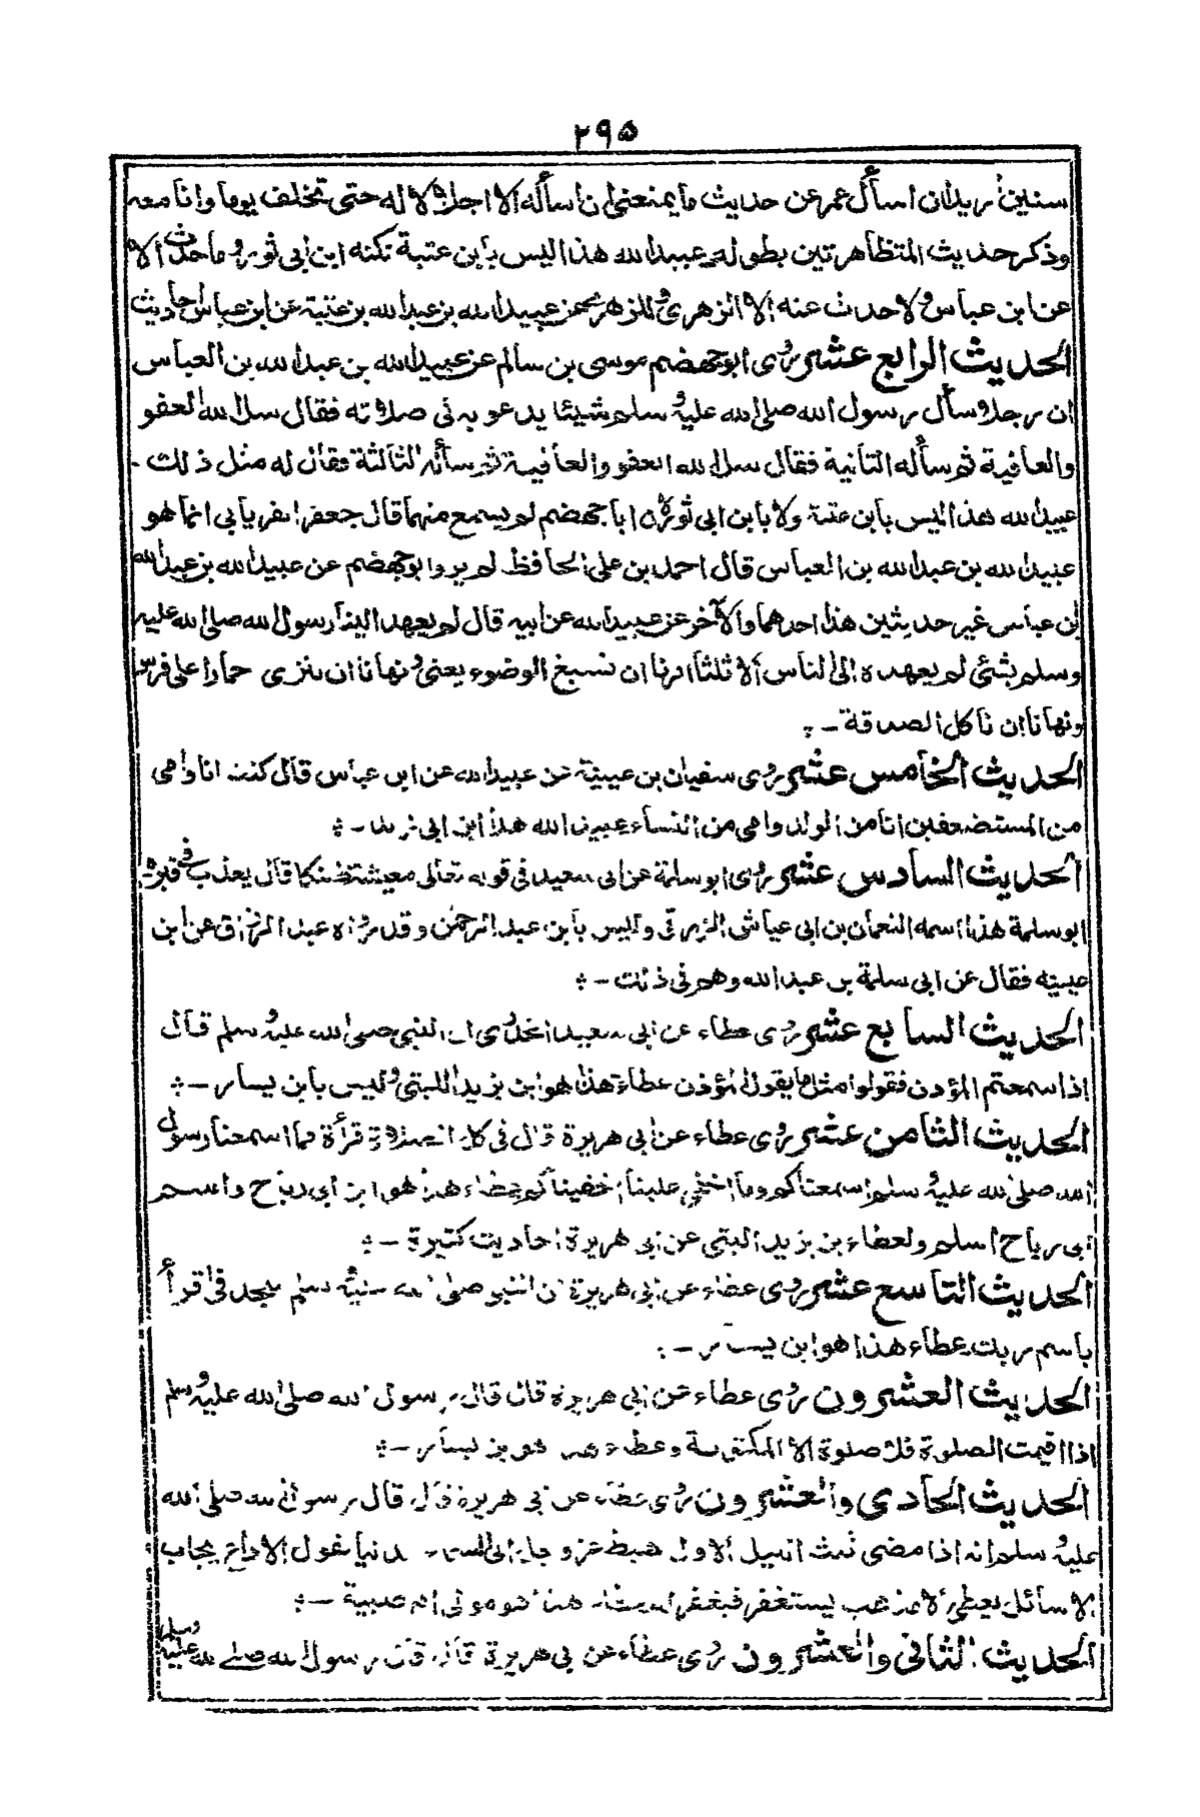 ٢٩٥
سنين أريد ان اسأل عمر عن حديث ما يمنعني ان اسأله الا اجلالا له حتى تخلف يوما وانا معه
وذكر حديث المتظاهرتين بطوله عبيد الله هذا ليس بابن عتبة لكنه ابن ابي ثور وما حدث الا
عن ابن عباس ولا حدث عنه الا الزهري وللزهري عن عبيد الله بن عبد الله بن عتبة عن ابن عباس احاديث
الحديث الرابع عشر روى ابو جهضم موسى بن سالم عن عبيد الله بن عبد الله بن العباس
ان رجلا سأل رسول الله صلى الله عليه وسلم شيئا يدعو به في صلاته فقال سل الله العفو
والعافية ثم سأله الثانية فقال سل الله العفو والعافية ثم سأله الثالثة فقال له مثل ذلك -
عبيد الله هذا ليس بابن عتبة ولا بابن ابي ثور لان ابا جهضم لم يسمع منهما قال جعفر الفريابي انما هو
عبيد الله بن عبد الله بن العباس قال احمد بن علي الحافظ لم يرو ابو جهضم عن عبيد الله بن عبد الله
بن عباس غير حديثين هذا احدهما والآخر عن عبيد الله عن ابيه قال لم يعهد الينا رسول الله صلى الله عليه
وسلم بشئ لم يعهده الى الناس الا ثلثا امرنا ان نسبغ الوضوء يعني ونهانا ان ننزى حمارا على فرس
ونهانا ان ناكل الصدقة -
الحديث الخامس عشر روى سفيان بن عيينة عن عبيد الله عن ابن عباس قال كنت انا وامي
من المستضعفين انا من الولدان وامي من النساء عبيد الله هذا ابن ابي يزيد -
الحديث السادس عشر روى ابو سلمة عن ابي سعيد في قوله تعالى معيشة ضنكا قال يعذب في قبره
ابو سلمة هذا اسمه النعمان بن ابي عياش الزرقي وليس بابن عبد الرحمن وقد رواه عبد الرزاق عن ابن
عيينه فقال عن ابي سلمة بن عبد الله وهم في ذلك -
الحديث السابع عشر روى عطاء عن ابي سعيد الخدري ان النبي صلى الله عليه وسلم قال
اذا سمعتم المؤذن فقولوا مثل ما يقول المؤذن عطاء هذا هو ابن يزيد الليثي وليس بابن يسار -
الحديث الثامن عشر روى عطاء عن ابي هريرة قال في كل الصلاة قرأة فما اسمعنا رسول
الله صلى الله عليه وسلم اسمعناكم وما اخفى علينا اخفينا عليكم عطاء هذا هو ابن ابي رباح واسم
ابي رباح اسلم ولعطاء بن يزيد الليثي عن ابي هريرة احاديث كثيرة -
الحديث التاسع عشر روى عطاء عن ابي هريرة ان النبي صلى الله عليه وسلم سجد في اقرأ
باسم ربك عطاء هذا هو ابن يسار -
الحديث العشرون روى عطاء عن ابي هريرة قال قال رسول الله صلى الله عليه وسلم
اذا اقيمت الصلوة فلا صلوة الا المكتوبة وعطاء هذا هو بن يسار -
الحديث الحادي والعشرون روى عطاء عن ابي هريرة قال قال رسول الله صلى الله
عليه وسلم انه اذا مضى ثلث الليل الاول هبط عز وجل الى السماء الدنيا يقول الا داع يجاب
الا سائل يعطى الا مذنب يستغفر فيغفر له عطاء هذا هو مولى ام صبية -
الحديث الثاني والعشرون روى عطاء عن ابي هريرة قال قال رسول الله صلى الله عليه وسلم